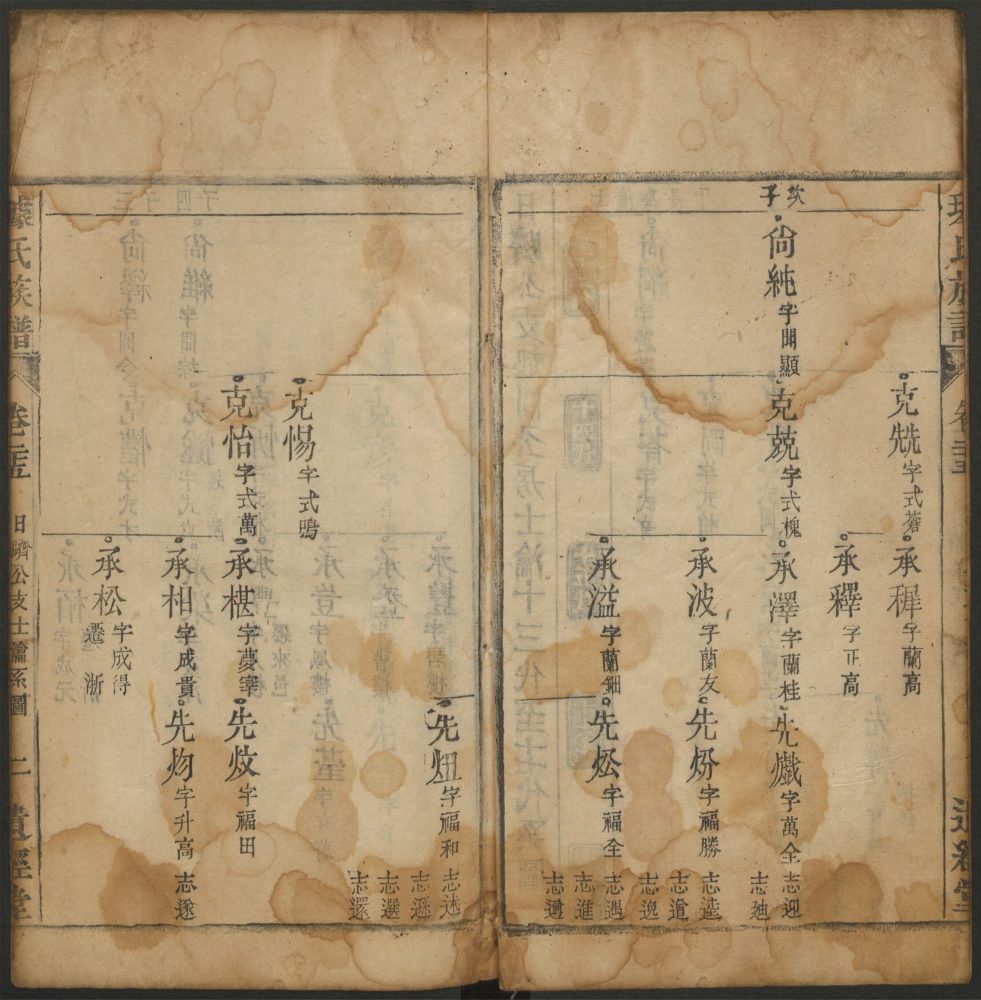 克兟字式蒼
承穉字蘭高
承釋字正高
次子
尙純字開顯
克兢字式槐
承澤字蘭桂
先戲字萬全
志迎
志廸
承波字蘭友
先炌字福勝
志逵
志道
志逸
承溢字蘭細
先炂字福全
志遇
志進
志遵
先炄字福和
志述
志遜
志選
志還
克惕字式鳴
克怡字式萬
承椹字夢宰
先炆字福田
承相字成貴
先灼字升高
志遂
承松字成得
遷浙
氏族譜
卷二十五
日躋公支士瀹系圖
二
遺經堂